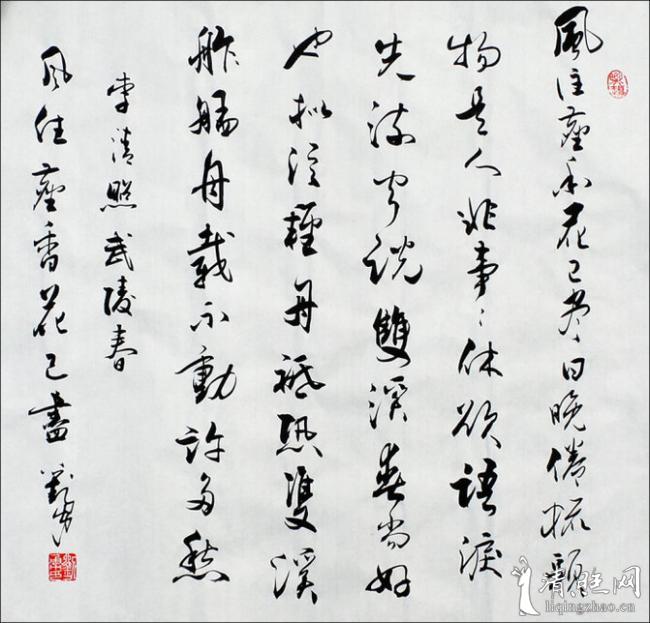 風住塵香花已尽日晚倦梳頭
物是人非事々休欲語淚
先流聞說雙溪春尚好
也擬泛輕舟祗恐雙溪
舴艋舟載不動許多愁
李清照武陵春
風住塵香花已盡
清照网
liqingzhao.com.cn